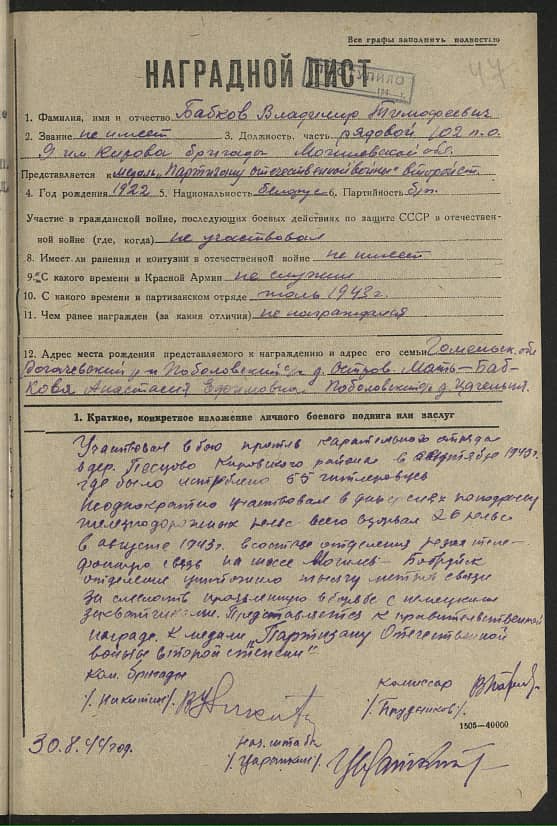 Все графы заполнить полностью
НАГРАДНОЙ ЛИСТ
ПОСТУПИЛО
47
1. Фамилия, имя и отчество Бабков Владимир Тимофеевич
2. Звание не имеет 3. Должность, часть рядовой 102 п.о.
9 им Кирова бригады Могилевской обл.
Представляется к медаль „Партизану отечественной войны" второй ст.
4. Год рождения 1922 5. Национальность белорус 6. Партийность б/п.
Участие в гражданской войне, последующих боевых действиях по защите СССР в отечествен-
ной войне (где, когда) не участвовал
8. Имеет ли ранения и контузии в отечественной войне не имеет
9. С какого времени в Красной Армии не служил
10. С какого времени в партизанском отряде июль 1943 г.
11. Чем ранее награжден (за какия отличия) не награждался
12. Адрес места рождения представляемого к награждению и адрес его семьи Гомельск. обл
Рогачевский р-н Поболовский с/с д. Остров. Мать – Баб-
кова Анастасия Поболовский с/с д.
1. Краткое, конкретное изложение личного боевого подвига или заслуг
Участвовал в бою против карательного отряда
в дер. Кировского района в сентябре 1943 г.
где было истреблено 55 гитлеровцев
Неоднократно участвовал в по подрыву
железнодорожных рельс всего взорвал 26 рельс
в августе 1943 г. в составе отделения резал теле-
фонную связь на шоссе Могилев – Бобруйск
отделение уничтожило тысячу метров связи
За смелость проявленную в борьбе с немецкими
захватчиками. Представляется к правительственной
награде. К медали „Партизану Отечественной
войны второй степени"
Ком. бригады
/Никитин/.
комиссар
/Прудников/.
1505—40000
30.8.44 год.
Нач. штаба